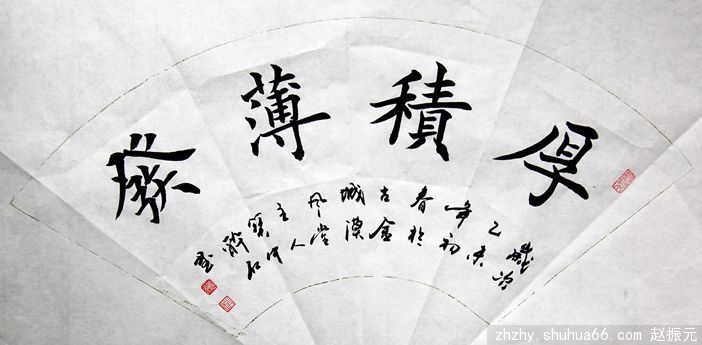 厚積薄發
歲次
乙未
年初
春於
古金
城漠
风堂
主人
zhzhy.shuhua66.com 赵振元